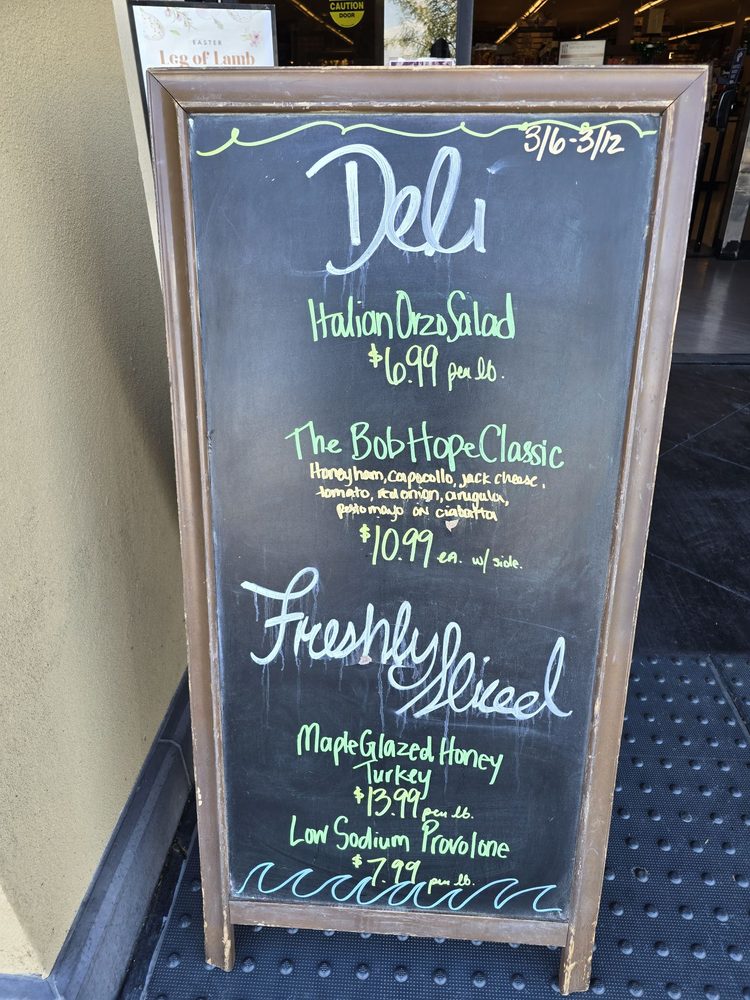 CAUTION
DOOR
EASTER
Leg of Lamb
3/6-3/12
Deli
Italian Orzo Salad
$6.99 per lb.
The Bob Hope Classic
Honey ham, capocollo, jack cheese,
tomato, red onion, arugula,
pesto mayo on ciabatta
$10.99 ea. w/ side.
Freshly Sliced
Maple Glazed Honey
Turkey
$13.99 per lb.
Low Sodium Provolone
$7.99 per lb.